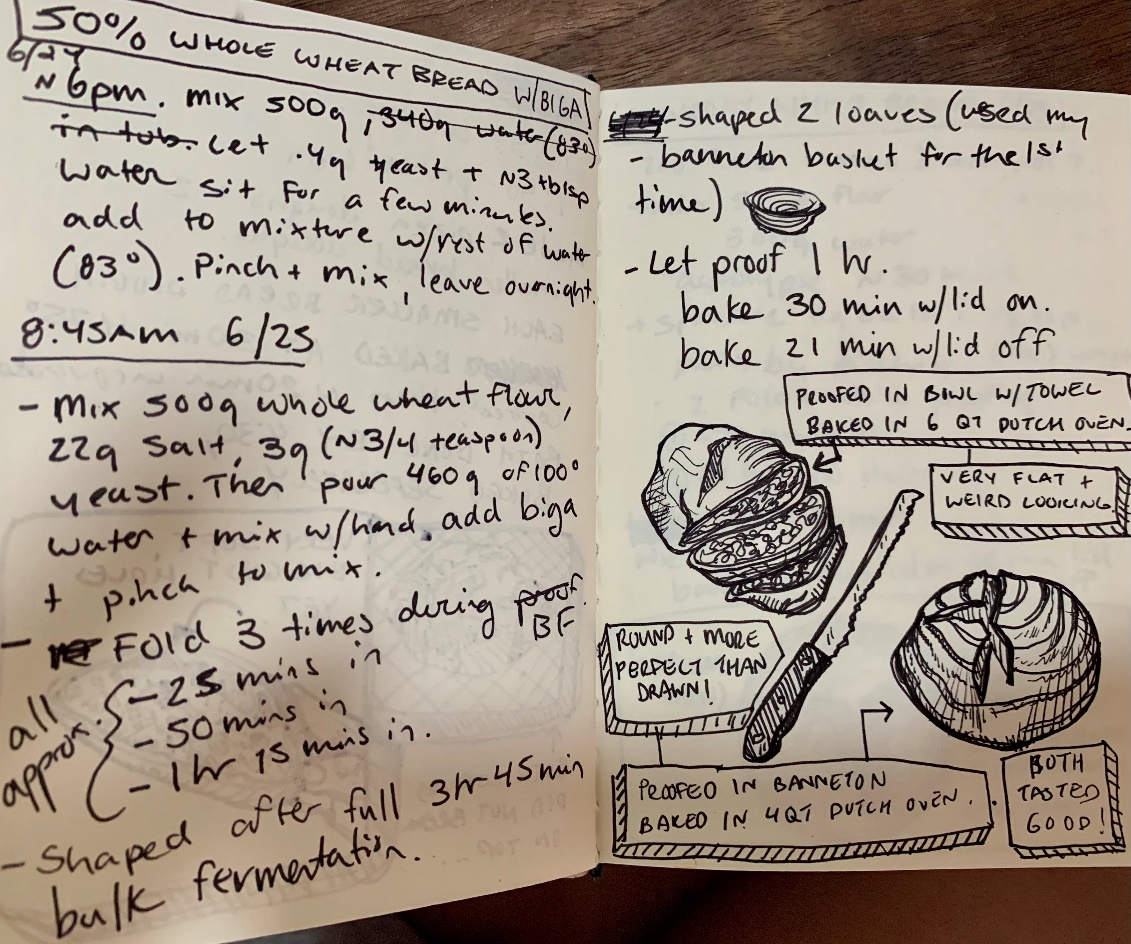 50% WHOLE WHEAT BREAD W/BIGA
6/24
~6pm. mix 500g, 340g water (83°)
in tub. Let .4g yeast + ~3 tblsp
water sit for a few minutes.
add to mixture w/rest of water
(83°). Pinch + mix, leave overnight.
8:45AM 6/25
- Mix 500g whole wheat flour,
22g salt, 3g (~3/4 teaspoon)
yeast. Then pour 460g of 100°
water + mix w/hand. add biga
+ pinch to mix.
- Fold 3 times during proof
BF
all
approx.
- 25 mins in
- 50 mins in
- 1hr 15 mins in.
- Shaped after full 3hr 45min
bulk fermentation.
- shaped 2 loaves (used my
- banneton basket for the 1st
time)
- Let proof 1 hr.
bake 30 min w/lid on.
bake 21 min w/lid off
PROOFED IN BOWL W/TOWEL
BAKED IN 6 QT DUTCH OVEN.
VERY FLAT +
WEIRD LOOKING
ROUND + MORE
PERFECT THAN
DRAWN!
PROOFED IN BANNETON
BAKED IN 4QT DUTCH OVEN.
BOTH
TASTED
GOOD!